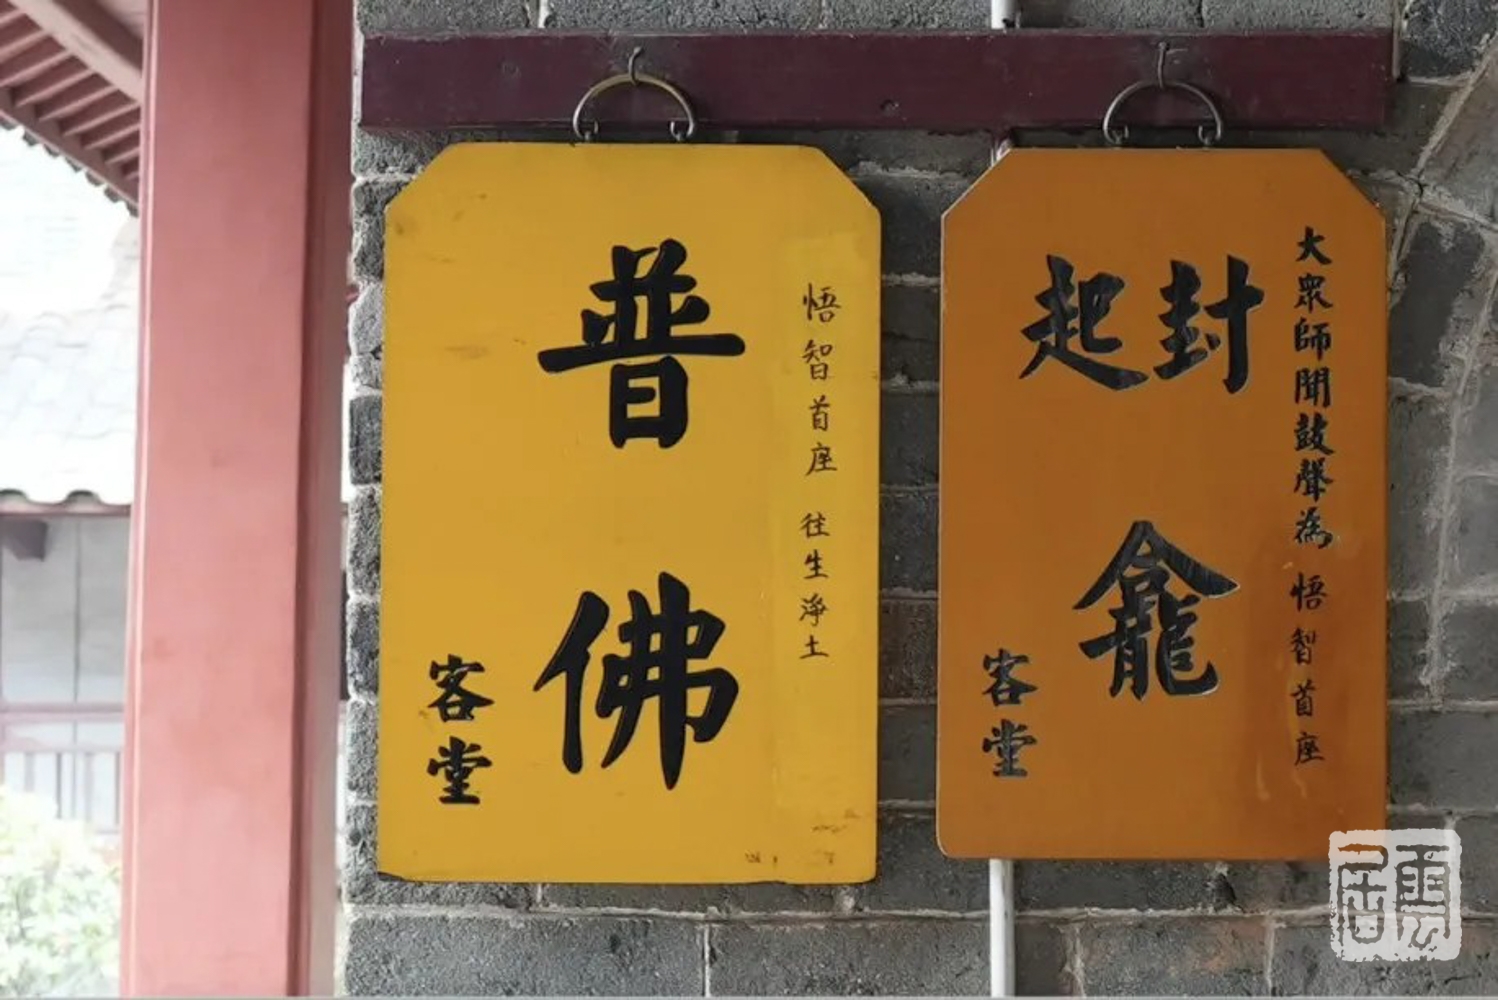 悟智首座 往生淨土
普佛
客堂
大眾師聞鼓聲為 悟智首座
封起
龕
客堂